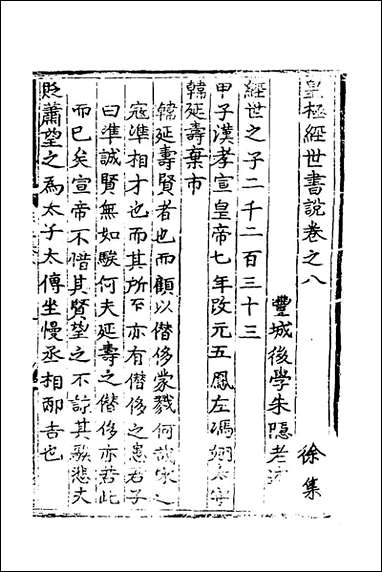 皇極經世書說卷之八
豐城後學朱隱老
徐集
經世之子二千二百三十三
甲子漢孝宣皇帝七年改元五鳳左馮翊太守
韓延壽棄市
韓延壽賢者也而顧以僭侈蒙戮何哉宋之
寇準相才也而其所下亦有僭侈之患君子
曰準誠賢無如騃何夫延壽之僭侈亦若此
而巳矣宣帝不惜其賢望之不諒其騃悲夫
貶蕭望之爲太子太傅坐慢丞相邴吉也